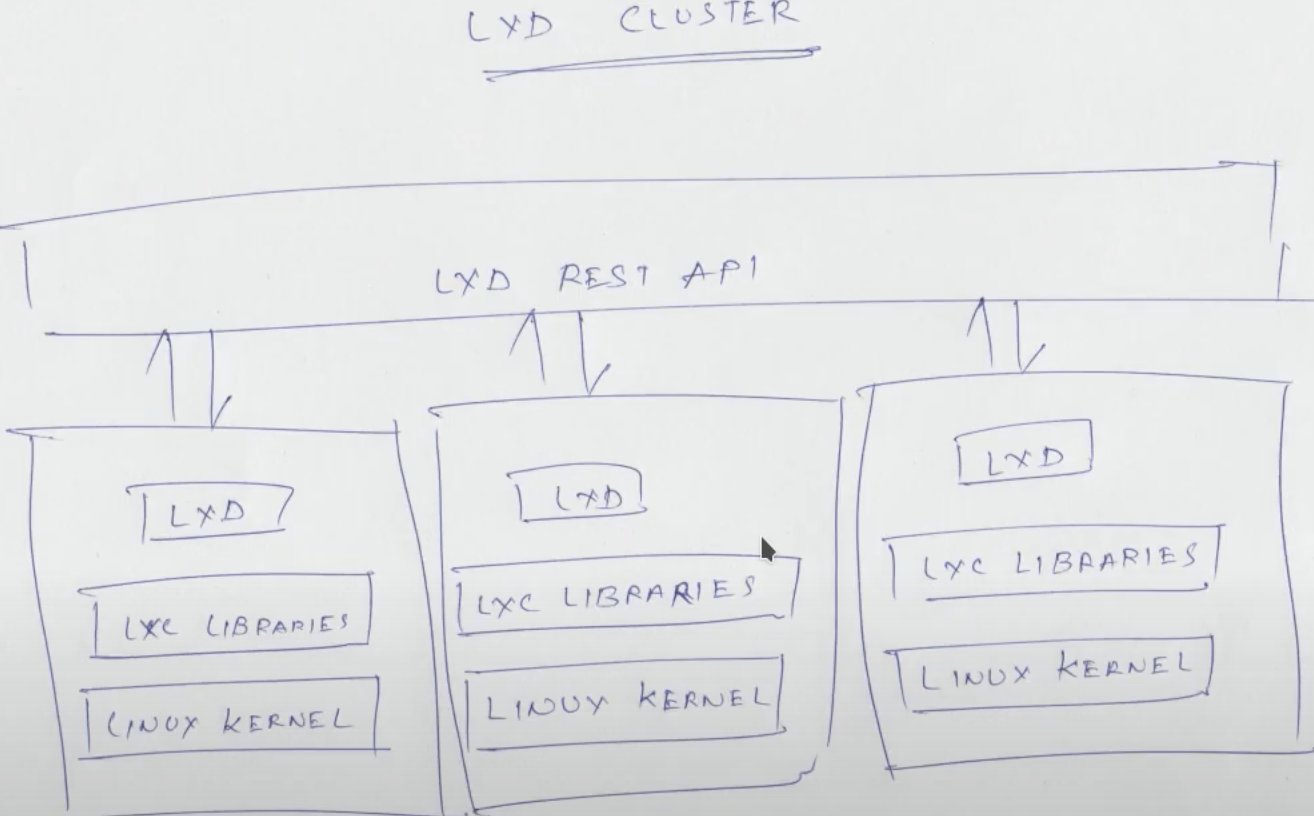 LXD CLUSTER
LXD REST API
LXD
LXC LIBRARIES
LINUX KERNEL
LXD
LXC LIBRARIES
LINUX KERNEL
LXD
LXC LIBRARIES
LINUX KERNEL